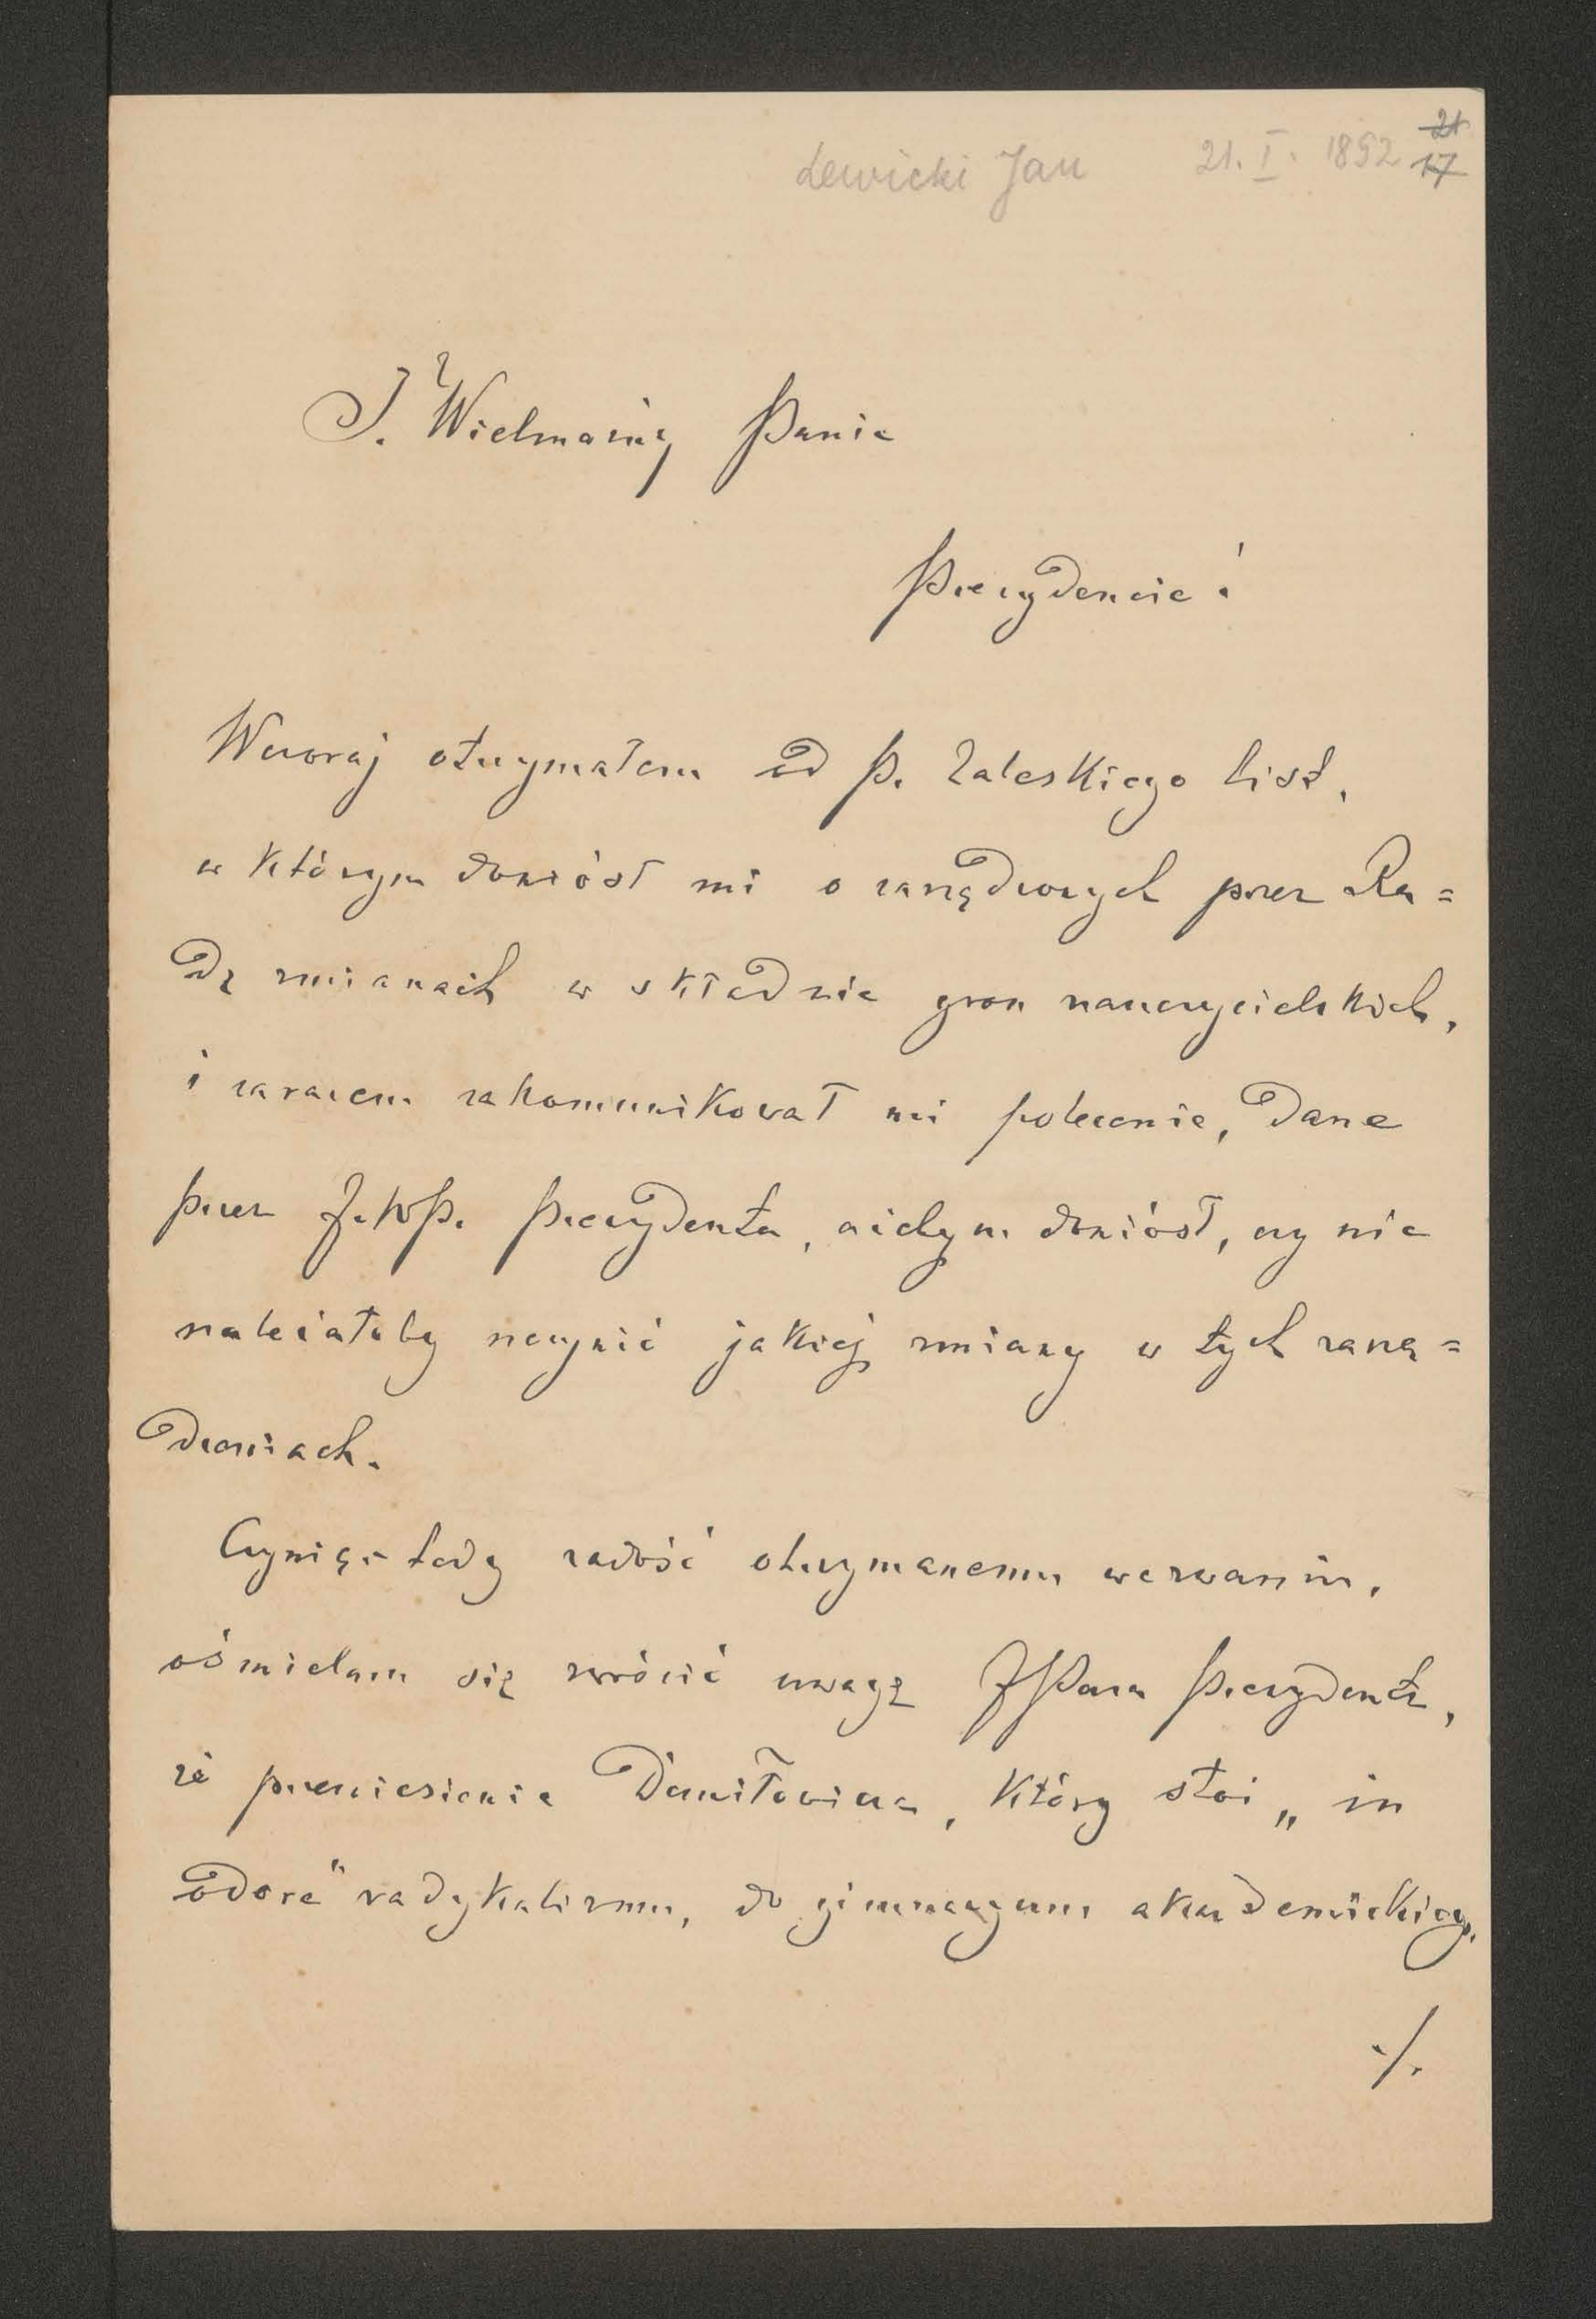 Lewicki Jan 21. I. 1892 21
17
J. Wielmożny Panie
Prezydencie!
Wczoraj otrzymałem od P. Zaleskiego list,
w którym doniósł mi o zarządzonych przez Ra=
dę zmianach w składzie gron nauczycielskich,
i zarazem zakomunikował mi polecenie, dane
przez J.WP. Prezydenta, ażebym doniósł, czy nie
należałoby uczynić jakiej zmiany w tych zarzą=
dzeniach.
Czyniąc tedy zadość otrzymanemu wezwaniu,
ośmielam się zwrócić uwagę JPana Prezydenta,
że przeniesienie Daniłowicza, który stoi „in
odore" radykalizmu, do gimnazyum akademickiego,
./.